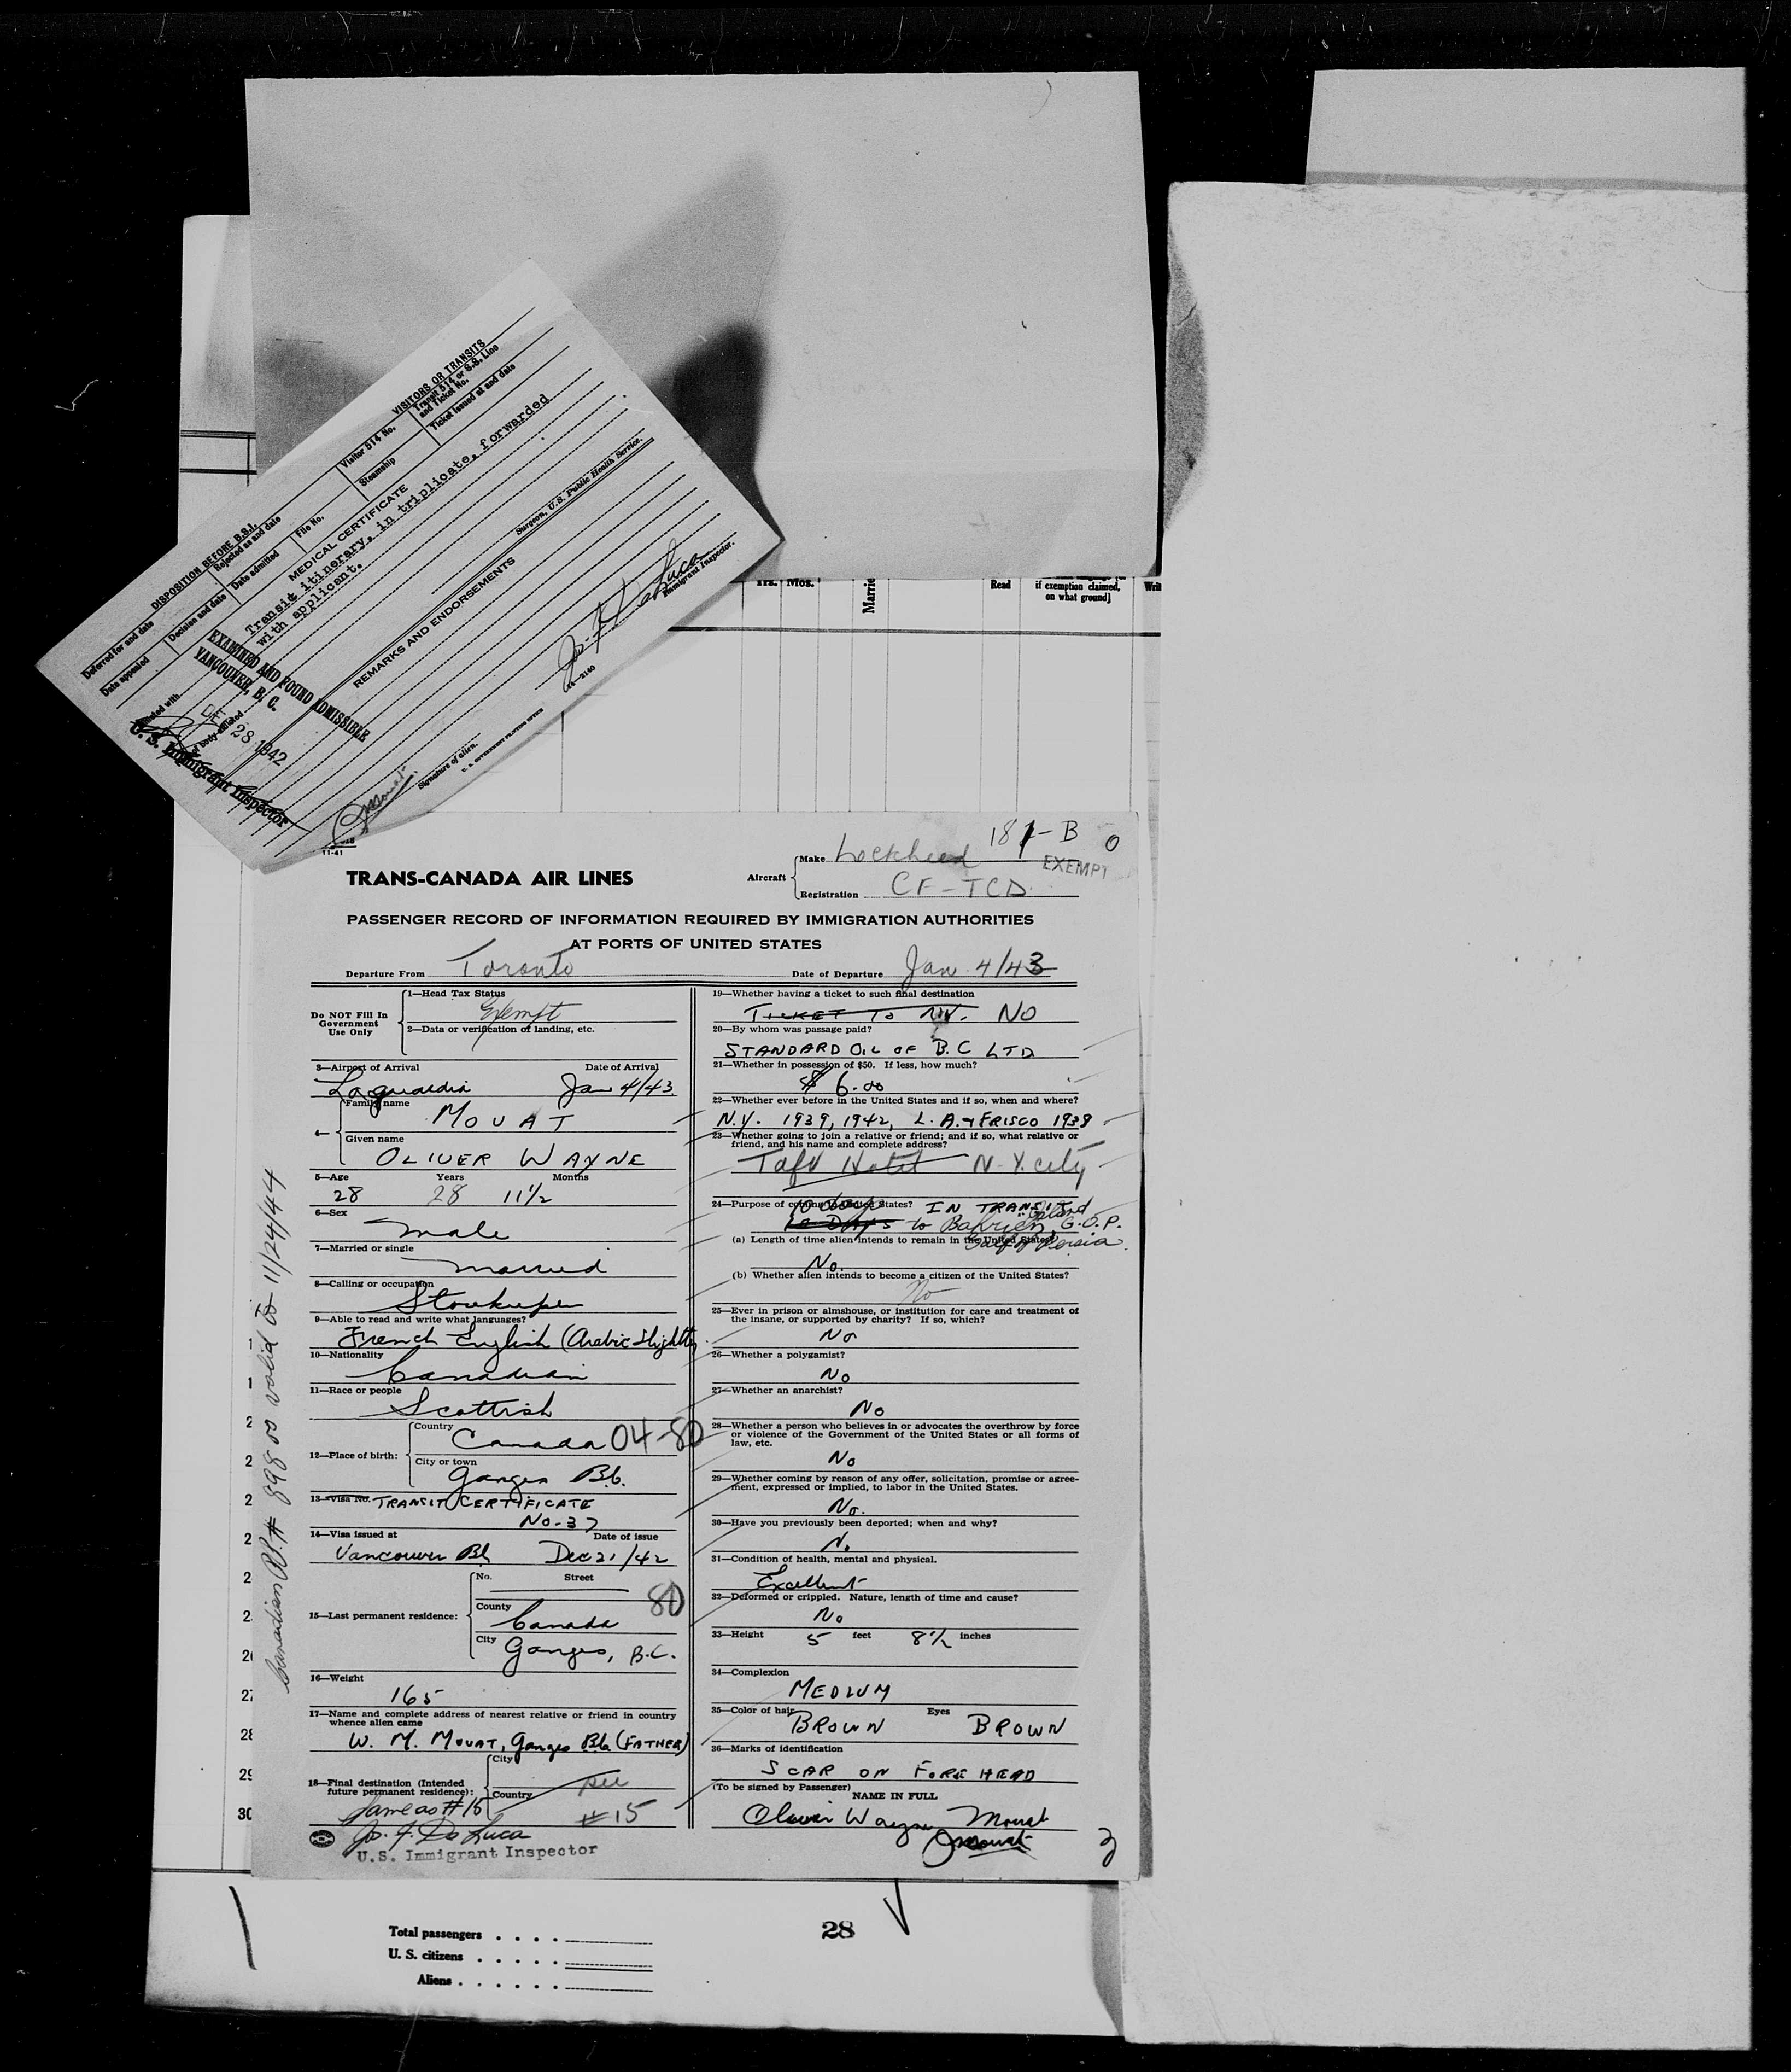 VISITORS OR TRANSITS
DISPOSITION BEFORE B.S.I.
Visitor 514 No.
Transit 514 or S.S. Line and Ticket No.
Deferred for and date
Rejected as and date
Steamship
Ticket issued at and date
Date appealed
Decision and date
Date admitted
File No.
MEDICAL CERTIFICATE
Transit itinerary, in triplicate, forwarded
with applicant.
Surgeon, U.S. Public Health Service.
REMARKS AND ENDORSEMENTS
EXAMINED AND FOUND ADMISSIBLE
VANCOUVER, B. C.
DEC 28 1942
U. S. Immigrant Inspector
Jos. F. De Luca
Immigrant Inspector.
16-2140
Signature of alien.
U. S. GOVERNMENT PRINTING OFFICE
OMouat
Yrs. Mos.
Marrie
Read
if exemption claimed,
on what ground]
Writ
11-41
181-B 0
Make Lockheed
EXEMPT
TRANS-CANADA AIR LINES
Aircraft
Registration CF-TCD
PASSENGER RECORD OF INFORMATION REQUIRED BY IMMIGRATION AUTHORITIES
AT PORTS OF UNITED STATES
Departure From Toronto Date of Departure Jan 4/43
Do NOT Fill In Government Use Only
1—Head Tax Status
Exempt
2—Data or verification of landing, etc.
3—Airport of Arrival Date of Arrival
Laguardia Jan 4/43
4— Family name
MOUAT
Given name
OLIVER WAYNE
5—Age Years Months
28 28 11½
6—Sex
male
7—Married or single
married
8—Calling or occupation
Storekeeper
9—Able to read and write what languages?
French English (Arabic slightly)
10—Nationality
Canadian
11—Race or people
Scottish
12—Place of birth:
Country
Canada 04-80
City or town
Ganges B.C.
13—Visa No. TRANSIT CERTIFICATE
No-37
14—Visa issued at Date of issue
Vancouver BC Dec 21/42
15—Last permanent residence:
No. Street
80
County
Canada
City
Ganges, B.C.
16—Weight
165
17—Name and complete address of nearest relative or friend in country
whence alien came
W. M. MOUAT, Ganges B.C. (FATHER)
18—Final destination (Intended
future permanent residence):
City
see
Country
#15
Same as #15
Jos. F. De Luca
U.S. Immigrant Inspector
Canadian # 898 valid to 11/24/44
19—Whether having a ticket to such final destination
TICKET TO N.Y. NO
20—By whom was passage paid?
STANDARD OIL OF B.C LTD
21—Whether in possession of $50. If less, how much?
$ 6.00
22—Whether ever before in the United States and if so, when and where?
N.Y. 1939, 1942, L.A. + FRISCO 1938
23—Whether going to join a relative or friend; and if so, what relative or
friend, and his name and complete address?
Taft Hotel N.Y. city
24—Purpose of coming to United States? IN TRANSIT
10 days
10 DAYS to Bahrien Island G.O.P.
(a) Length of time alien intends to remain in the United States?
Gulf of Persia
No.
(b) Whether alien intends to become a citizen of the United States?
No
25—Ever in prison or almshouse, or institution for care and treatment of
the insane, or supported by charity? If so, which?
No
26—Whether a polygamist?
No
27—Whether an anarchist?
No
28—Whether a person who believes in or advocates the overthrow by force
or violence of the Government of the United States or all forms of
law, etc.
No
29—Whether coming by reason of any offer, solicitation, promise or agree-
ment, expressed or implied, to labor in the United States.
No.
30—Have you previously been deported; when and why?
No
31—Condition of health, mental and physical.
Excellent
32—Deformed or crippled. Nature, length of time and cause?
No
33—Height 5 feet 8½ inches
34—Complexion
MEDIUM
35—Color of hair Eyes
BROWN BROWN
36—Marks of identification
SCAR ON FOREHEAD
(To be signed by Passenger)
NAME IN FULL
Oliver Wayne Mouat
OMouat
2
27
28
29
30
Total passengers
U. S. citizens
Aliens
28